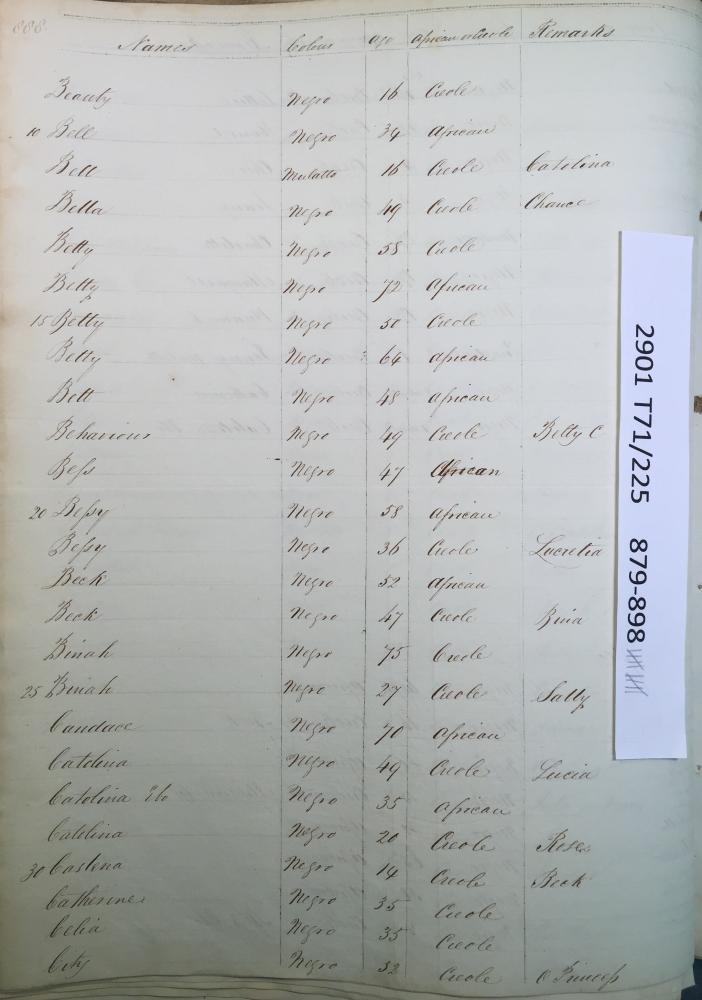 888.
Names Colour age African or Creole Remarks
Beauty Negro 16 Creole
10 Bell Negro 34 African
Bell Mulatto 16 Creole Catolina
Bella Negro 49 Creole Chance
Betty Negro 58 Creole
Betty Negro 72 African
15 Betty Negro 50 Creole
Betty Negro 64 African
Bett Negro 48 African
Behaviour Negro 49 Creole Betty C
Bess Negro 47 African
20 Bessy Negro 58 African
Bessy Negro 36 Creole Lucretia
Beck Negro 52 African
Beck Negro 47 Creole
Binah Negro 75 Creole
25 Binah Negro 27 Creole Sally
Candace Negro 70 African
Catolina Negro 49 Creole Lucia
Catolina Ebo Negro 35 African
Catolina Negro 20 Creole Rose
30 Castena Negro 14 Creole Beck
Catherine Negro 35 Creole
Celia Negro 35 Creole
Negro 32 Creole O Princess
2901 T71/225 879-898